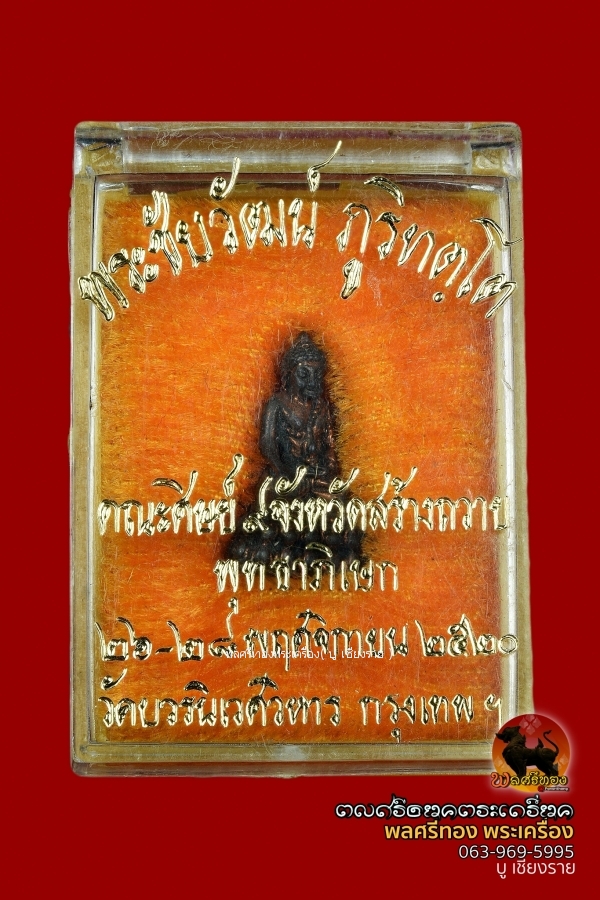 พระชัยวัฒน์ ภูริทตฺโต
คณะศิษย์ ๙ จังหวัดสร้างถวาย
พุทธาภิเษก
๒๖-๒๘ พฤศจิกายน ๒๕๒๐
พลศรีทองพระเครื่อง( บู เชียงราย
วัดบวรนิเวศวิหาร กรุงเทพฯ
พลศรีทอง
พลศรีทอง พระเครื่อง
063-969-5995
บู เชียงราย